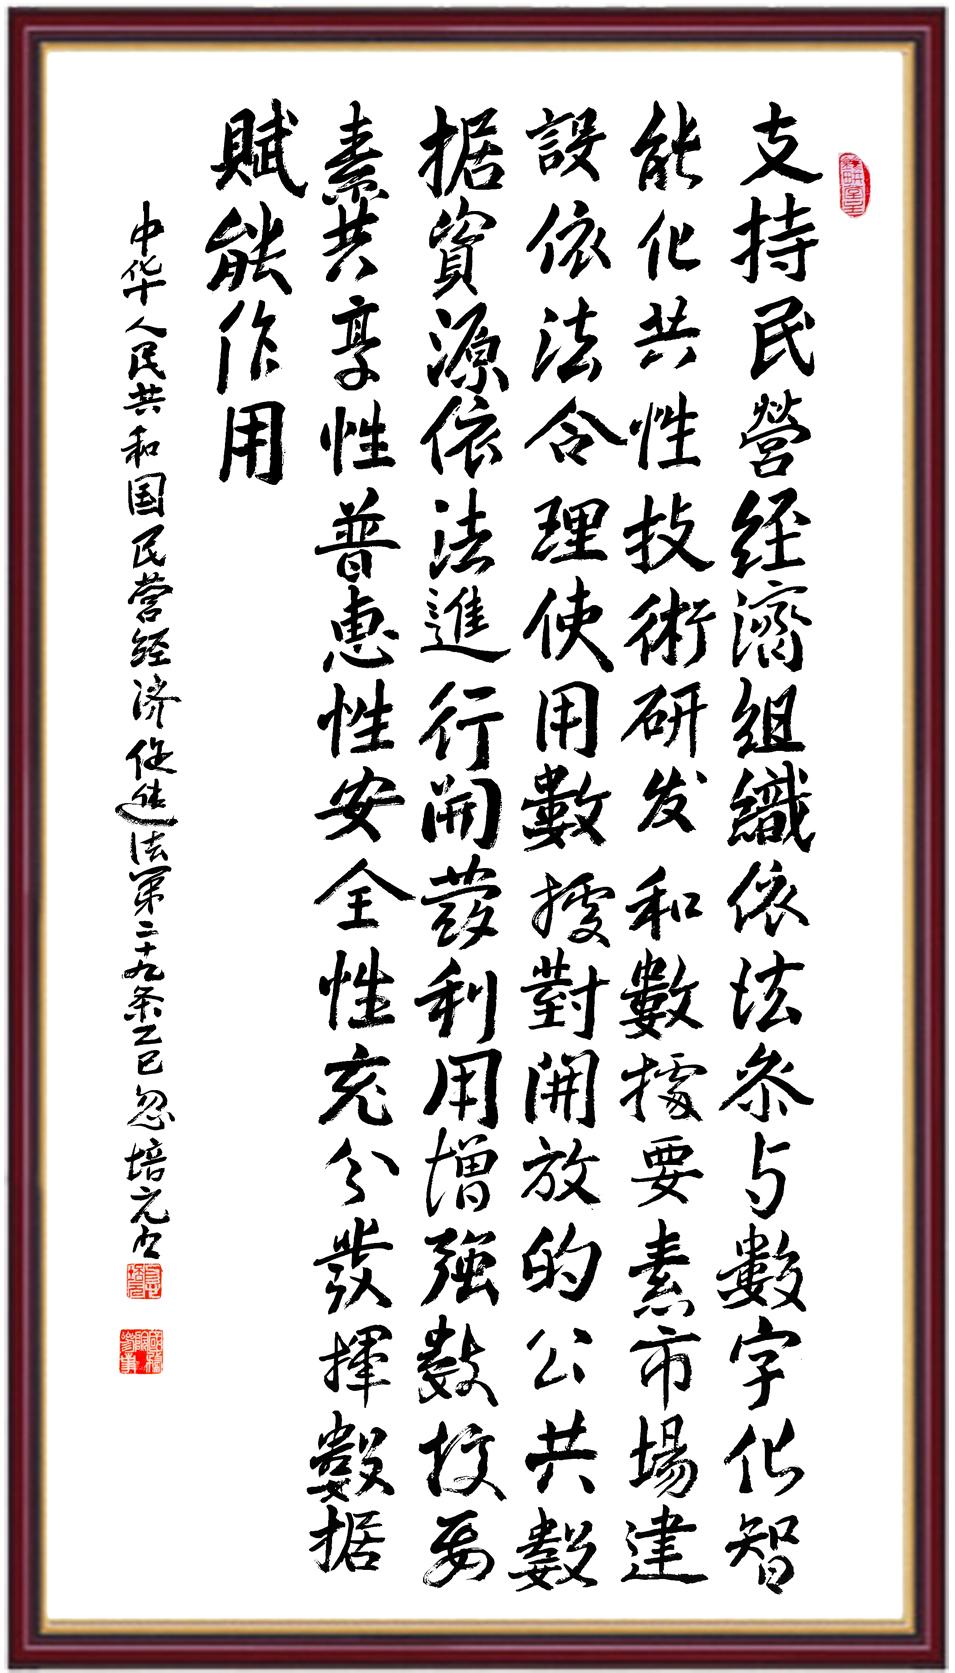 支持民營经濟組織依法叅与數字化智
能化共性技術研发和數據要素市場建
設依法合理使用數據對開放的公共數
据資源依法進行開發利用增強數据要
素共享性普惠性安全性充分發揮數据
賦能作用
中华人民共和国民营经济促进法第二十九条乙巳忽培元书
國務院參事